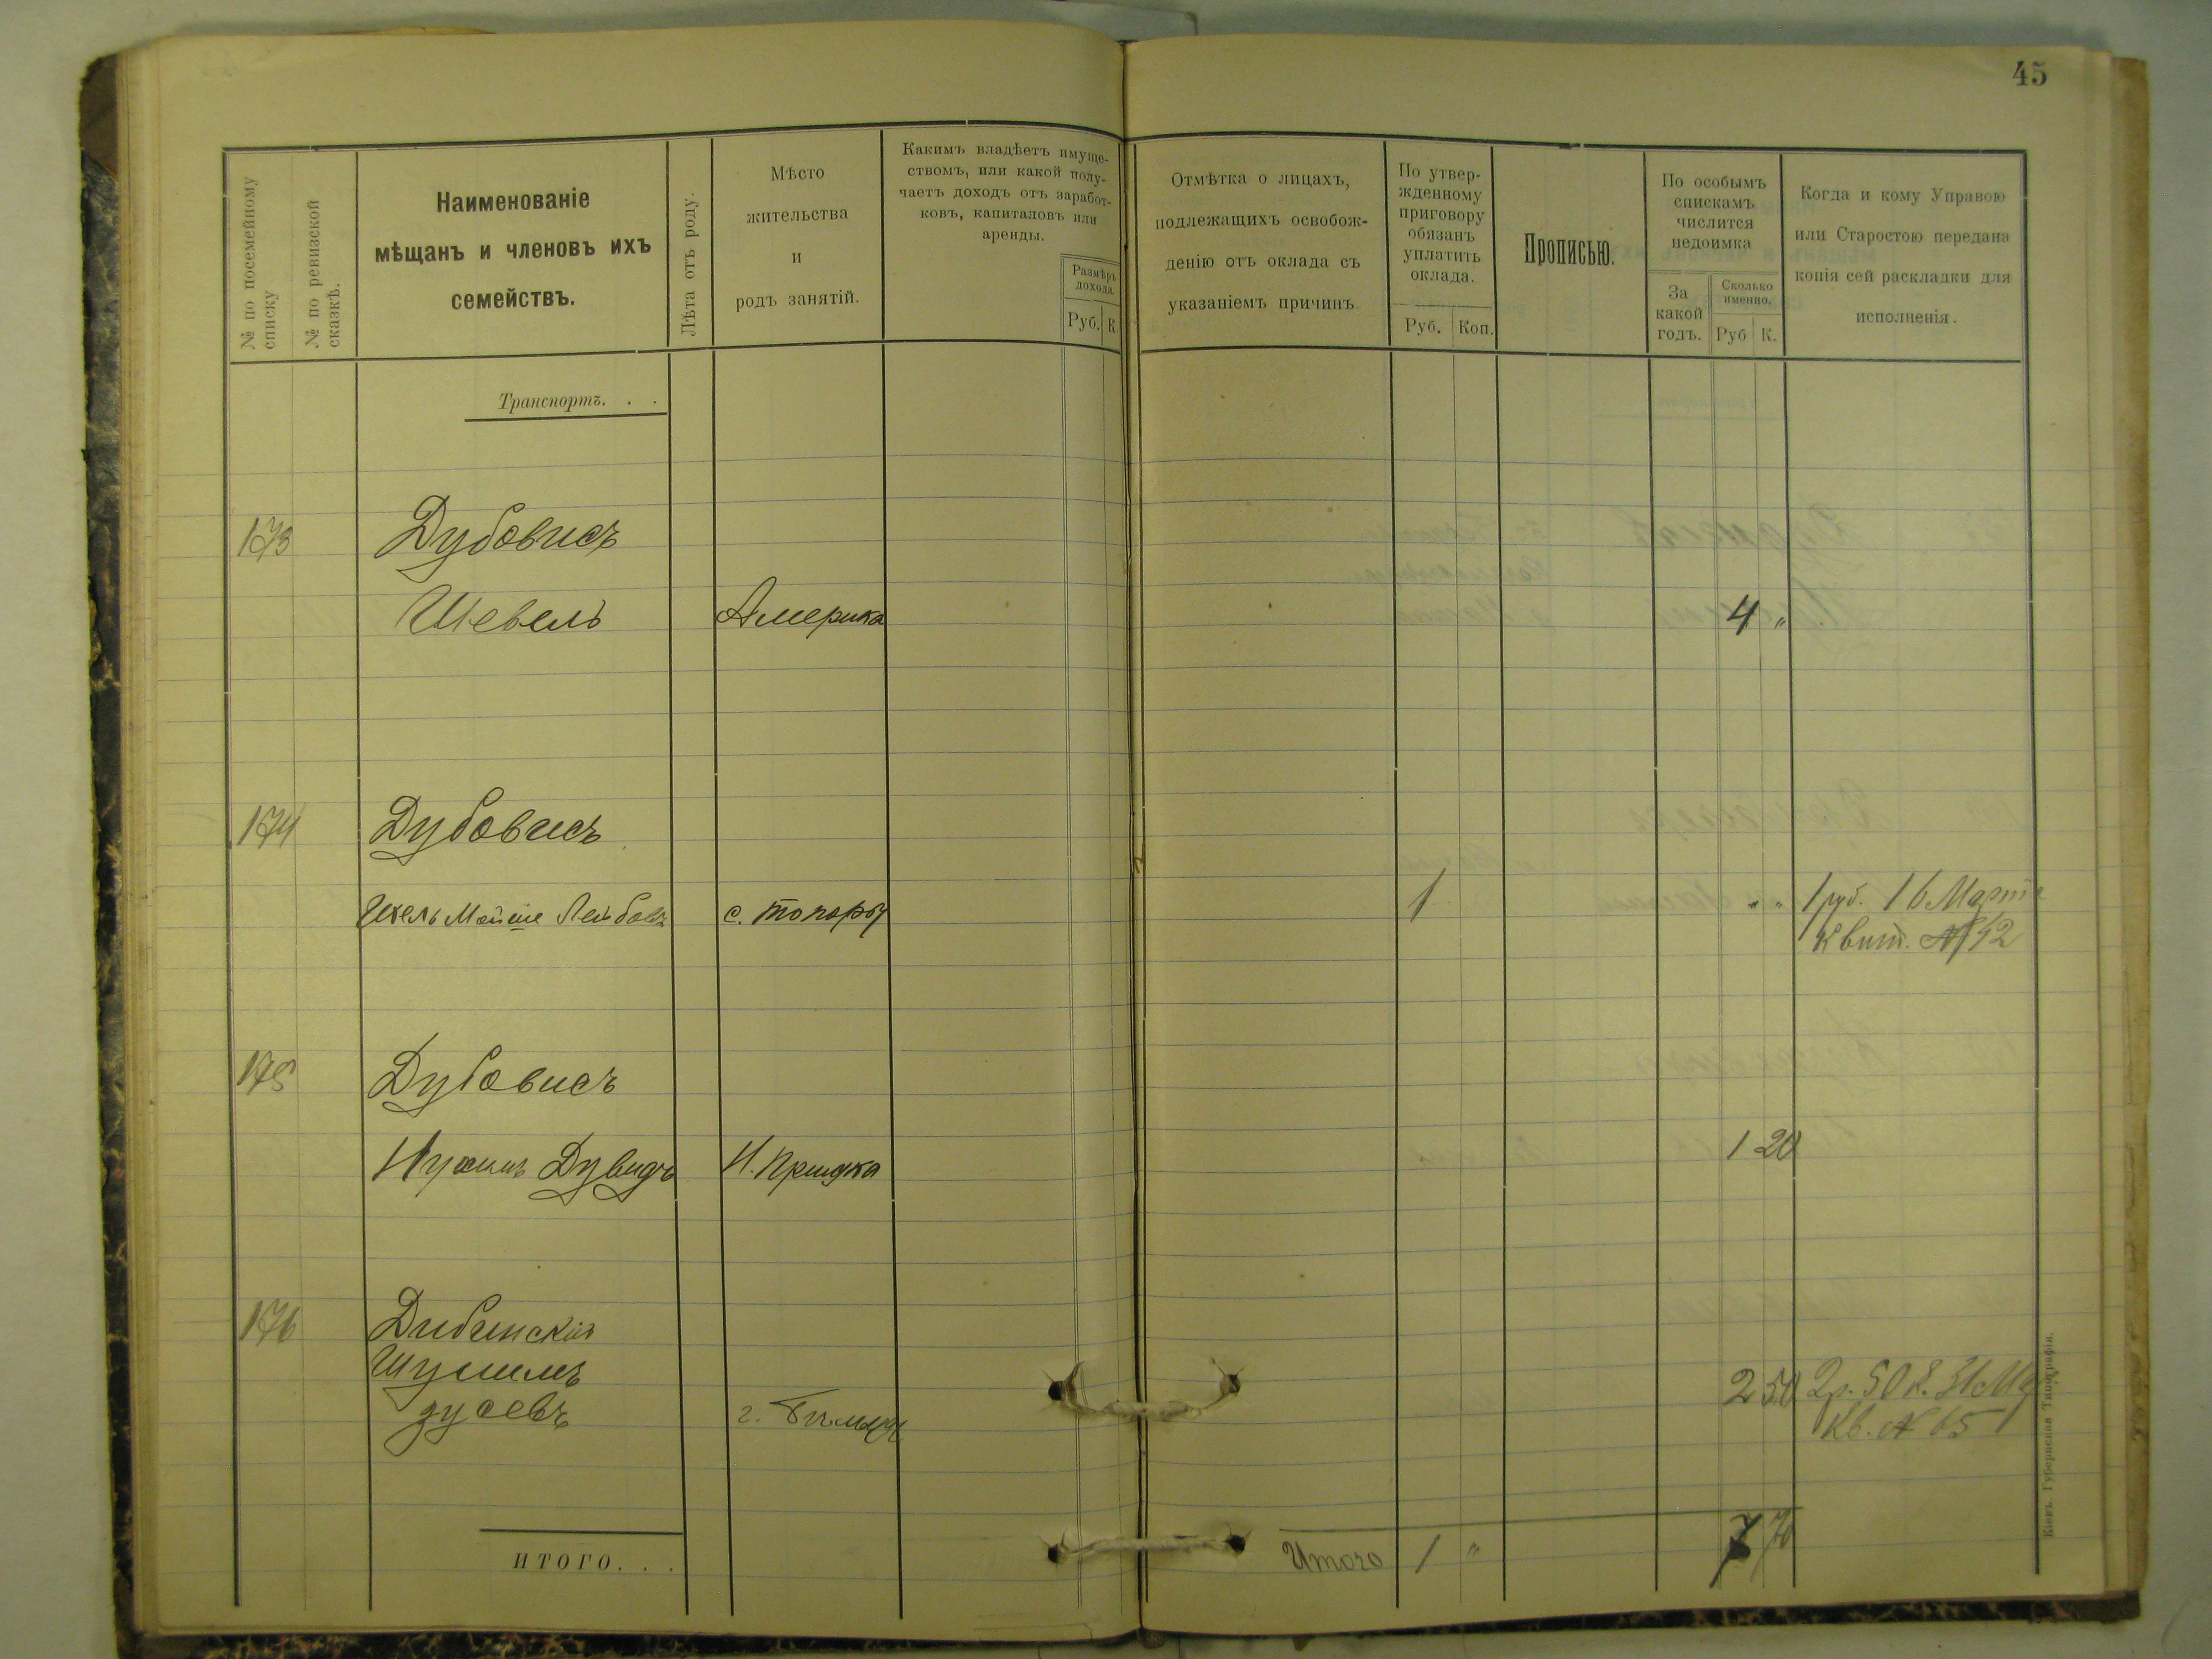 45
№ по посемейному
списку
№ по ревизской
сказкѣ.
Наименованіе
мѣщанъ и членовъ ихъ
семействъ.
Лѣта отъ роду.
Мѣсто
жительства
и
родъ занятій.
Какимъ владѣетъ имуще-
ствомъ, или какой полу-
чаетъ доходъ отъ заработ-
ковъ, капиталовъ или
аренды.
Размѣръ
дохода.
Руб. К.
Отмѣтка о лицахъ,
подлежащихъ освобож-
денію отъ оклада съ
указаніемъ причинъ.
По утвер-
жденному
приговору
обязанъ
уплатить
оклада.
Руб. Коп.
Прописью.
По особымъ
спискамъ
числится
недоимка
За
какой
годъ.
Сколько
именно.
Руб К.
Когда и кому Управою
или Старостою передана
копія сей раскладки для
исполненія.
Транспортъ. . .
173 Дубовисъ
Шевель Америка 4 "
174 Дубовисъ
Мойше с. Топоры 1 " " 1 руб. 16 Марта
Квит. № 42
175 Дубовисъ
Нухимъ Дувидъ 1 20
176 Дибинскій
Шулимъ
г. 2 50 2р. 50 к.
Кв. № 65
ИТОГО. . . Итого 1 " 7 70
Кіевъ. Губернская Типографія.